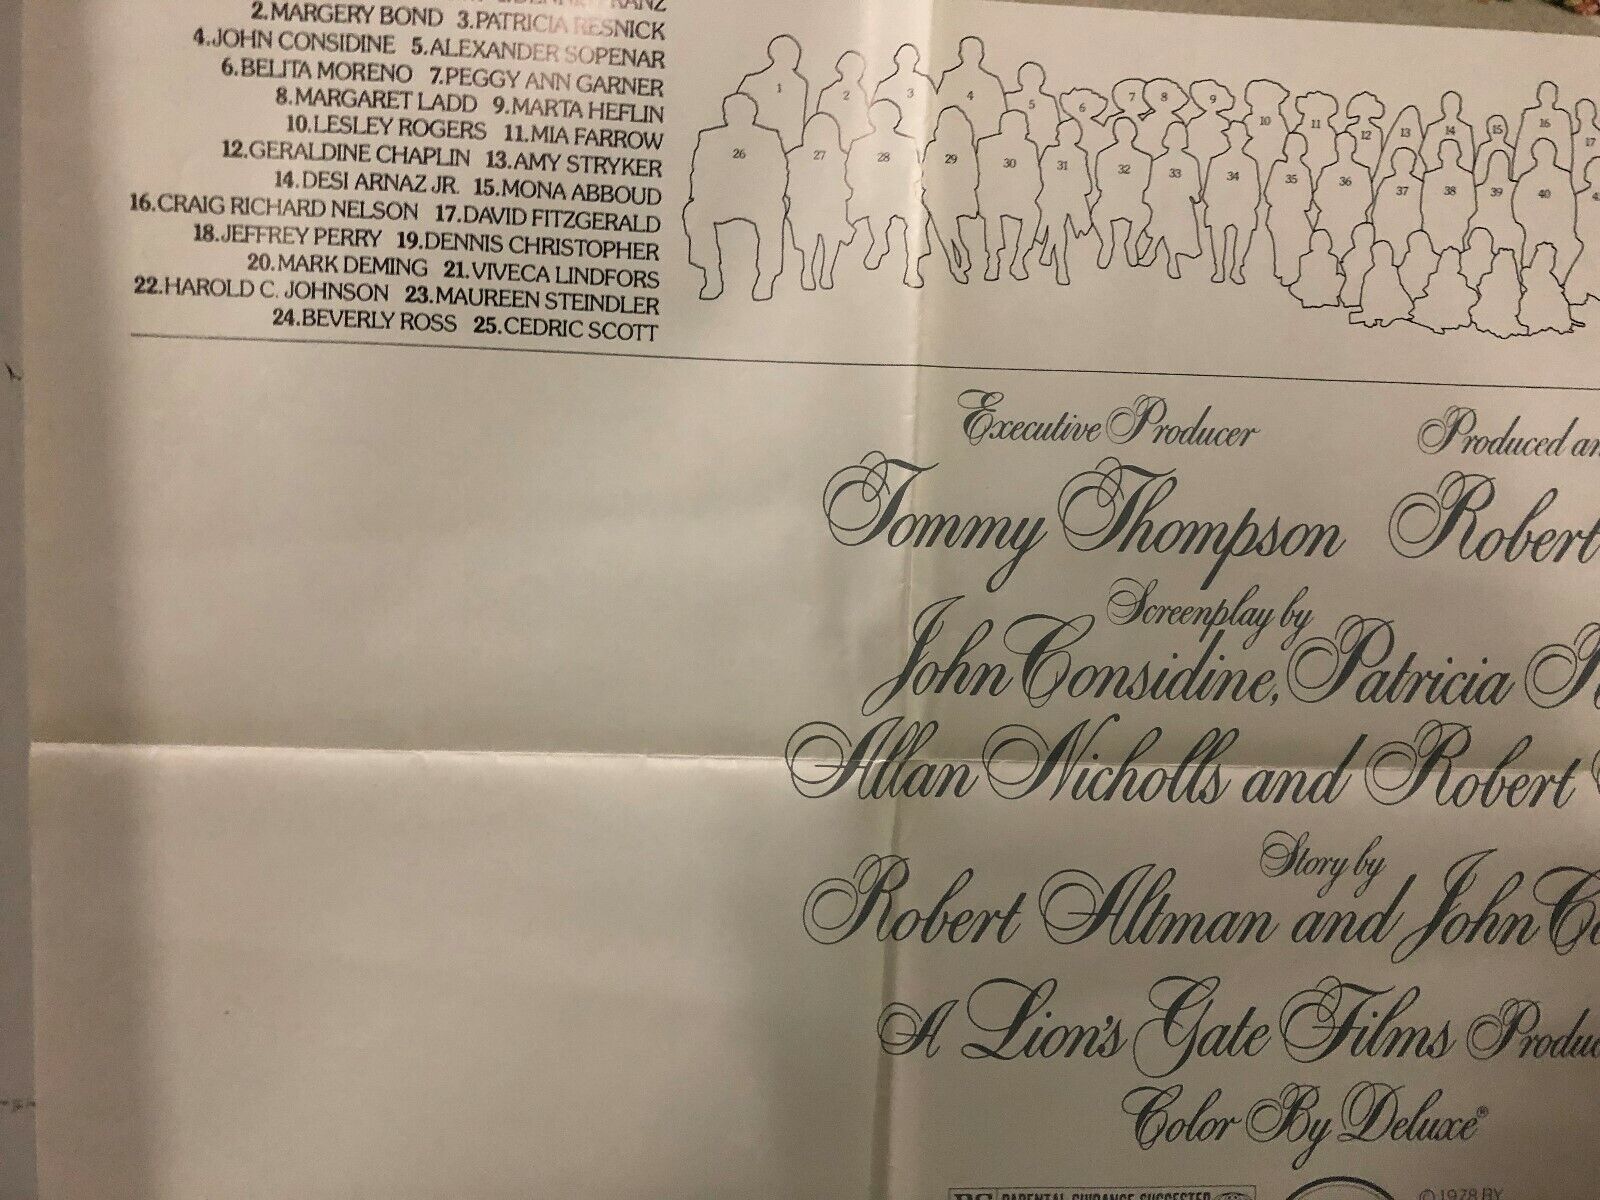 2.MARGERY BOND 3.PATRICIA RESNICK
4.JOHN CONSIDINE 5.ALEXANDER SOPENAR
6.BELITA MORENO 7.PEGGY ANN GARNER
8.MARGARET LADD 9.MARTA HEFLIN
10.LESLEY ROGERS 11.MIA FARROW
12.GERALDINE CHAPLIN 13.AMY STRYKER
14.DESI ARNAZ JR. 15.MONA ABBOUD
16.CRAIG RICHARD NELSON 17.DAVID FITZGERALD
18.JEFFREY PERRY 19.DENNIS CHRISTOPHER
20.MARK DEMING 21.VIVECA LINDFORS
22.HAROLD C. JOHNSON 23.MAUREEN STEINDLER
24.BEVERLY ROSS 25.CEDRIC SCOTT
1 2 3 4 5 6 7 8 9 10 11 12 13 14 15 16 17
26 27 28 29 30 31 32 33 34 35 36 37 38 39 40
Executive Producer Produced
Tommy Thompson Robert
Screenplay by
John Considine, Patricia
Allan Nicholls and Robert
Story by
Robert Altman and John
A Lion's Gate Films
Color By Deluxe®
PG PARENTAL GUIDANCE SUGGESTED
© 1978 BY